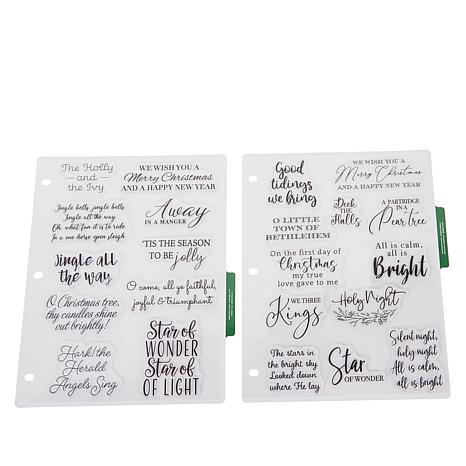 The Holly
— and —
the Ivy
WE WISH YOU A
Merry Christmas
AND A HAPPY NEW YEAR
Jingle bells, jingle bells
Jingle all the way
Oh, what fun it is to ride
In a one horse open sleigh
Away
IN A MANGER
'TIS THE SEASON
TO BE jolly
Jingle all
the way
O come, all ye faithful,
joyful & triumphant
O Christmas tree,
thy candles shine
out brightly!
Star of
WONDER
Star of
OF LIGHT
Hark! the
Herald
Angels Sing
Good
tidings
we bring
WE WISH YOU A
Merry Christmas
AND A HAPPY NEW YEAR
Deck
THE
Halls
A PARTRIDGE
IN A
Pear tree
O LITTLE
TOWN OF
BETHLEHEM
All is calm,
all is
Bright
On the first day of
Christmas
my true
love gave to me
WE THREE
Kings
Holy Night
Silent night,
holy night
All is calm,
all is bright
The stars in the
bright sky
Looked down
where He lay
Star
OF WONDER